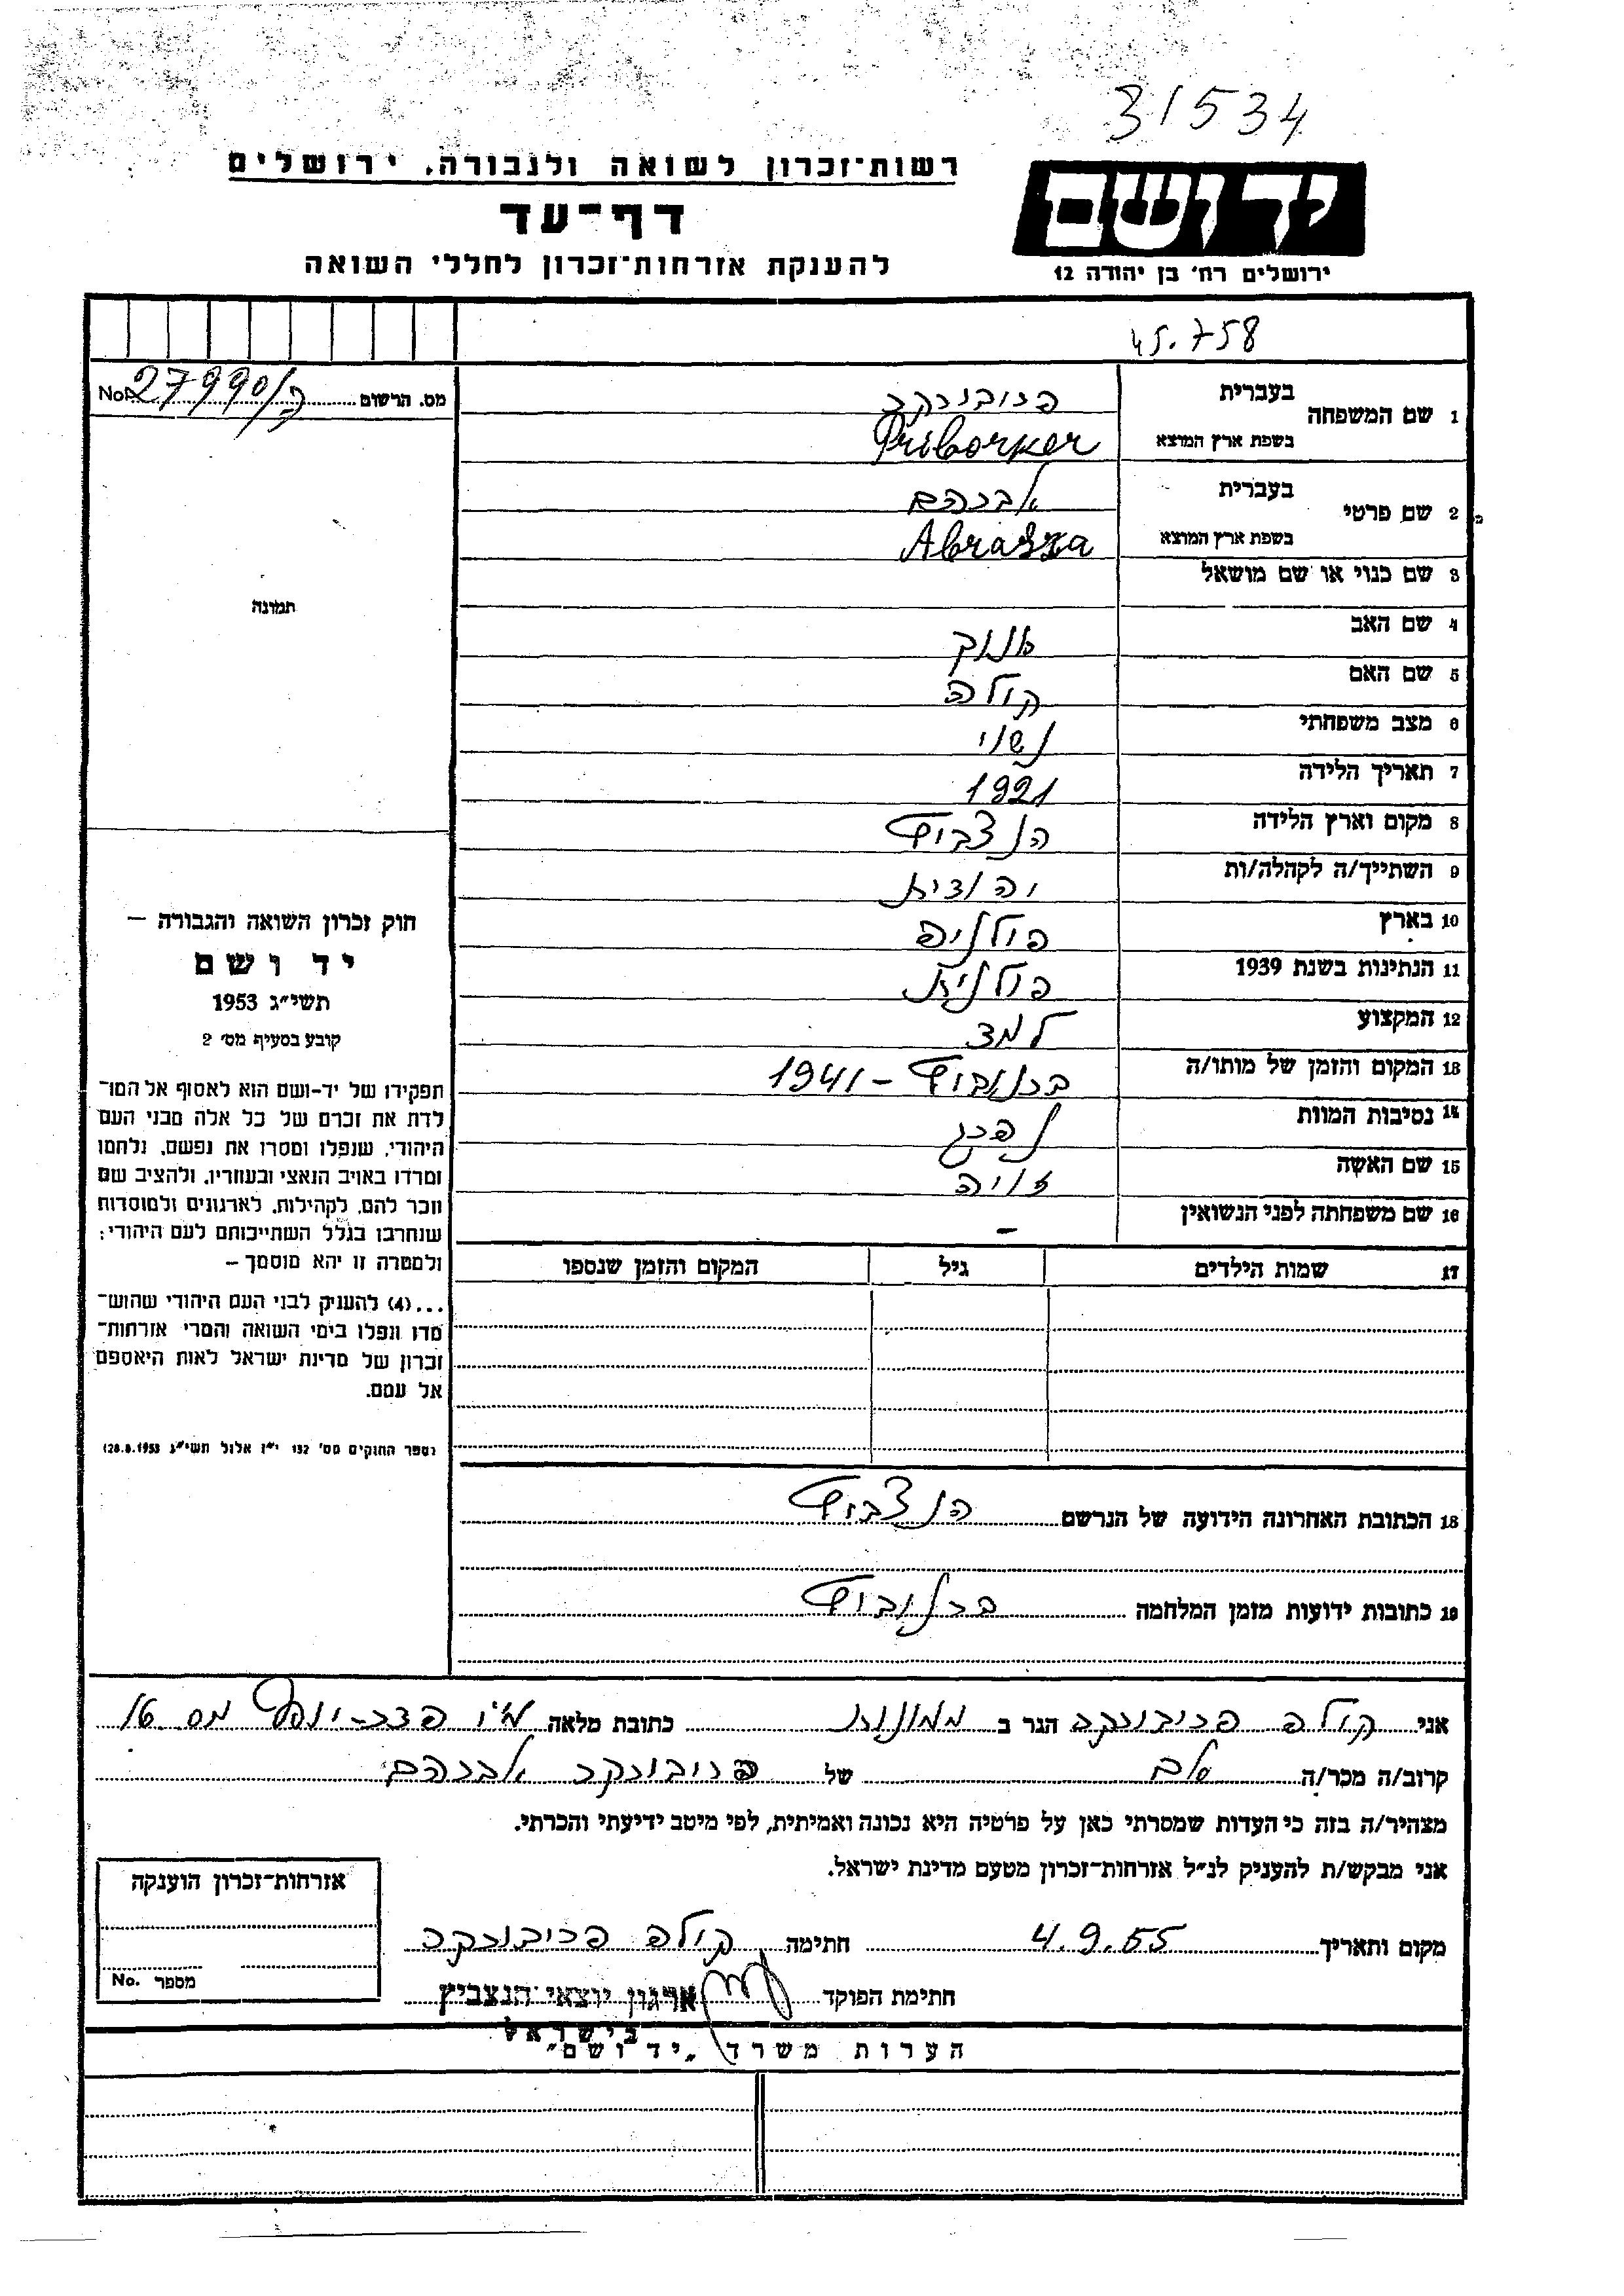 31534
רשות־זכרון לשואה ולגבורה, ירושלים
יד ושם
דף־עד
ירושלים רח' בן יהודה 12
להענקת אזרחות־זכרון לחללי השואה
45.758
מס. הרשום No. 27990/פ
1 שם המשפחה בעברית פריבורקר
בשפת ארץ המוצא Priborker
2 שם פרטי בעברית אברהם
בשפת ארץ המוצא Abrasza
3 שם כנוי או שם מושאל
תמונה
4 שם האב
5 שם האם קולה
6 מצב משפחתי נשוי
7 תאריך הלידה 1921
8 מקום וארץ הלידה הנצביץ
9 השתייך/ה לקהלה/ות יהודית
10 בארץ פולניה
11 הנתינות בשנת 1939 פולנית
12 המקצוע למד
13 המקום והזמן של מותו/ה ברנוביץ – 1941
14 נסיבות המוות נהרג
15 שם האשה זויה
16 שם משפחתה לפני הנשואין –
17 שמות הילדים גיל המקום והזמן שנספו
חוק זכרון השואה והגבורה –
יד ושם
תשי״ג 1953
קובע בסעיף מס' 2
תפקידו של יד-ושם הוא לאסוף אל המו־
לדת את זכרם של כל אלה מבני העם
היהודי, שנפלו ומסרו את נפשם, נלחמו
ומרדו באויב הנאצי ובעוזריו, ולהציב שם
וזכר להם, לקהילות, לארגונים ולמוסדות
שנחרבו בגלל השתייכותם לעם היהודי;
ולמטרה זו יהא מוסמך –
...(4) להעניק לבני העם היהודי שהוש־
מדו ונפלו בימי השואה והמרי אזרחות־
זכרון של מדינת ישראל לאות היאספם
אל עמם.
(ספר החוקים מס' 132 י״ז אלול תשי״ג 28.8.1953)
18 הכתובת האחרונה הידועה של הנרשם הנצביץ
19 כתובות ידועות מזמן המלחמה ברנוביץ
אני קולה פריבורקר הגר ב כתובת מלאה מס 16
קרוב/ה מכר/ה אם של פריבורקר אברהם
מצהיר/ה בזה כי העדות שמסרתי כאן על פרטיה היא נכונה ואמיתית, לפי מיטב ידיעתי והכרתי.
אני מבקש/ת להעניק לנ״ל אזרחות־זכרון מטעם מדינת ישראל.
מקום ותאריך 4.9.55 חתימה קולה פריבורקר
חתימת הפוקד ארגון יוצאי הנצביץ
בישראל
אזרחות־זכרון הוענקה
מספר No.
הערות משרד „יד ושם"